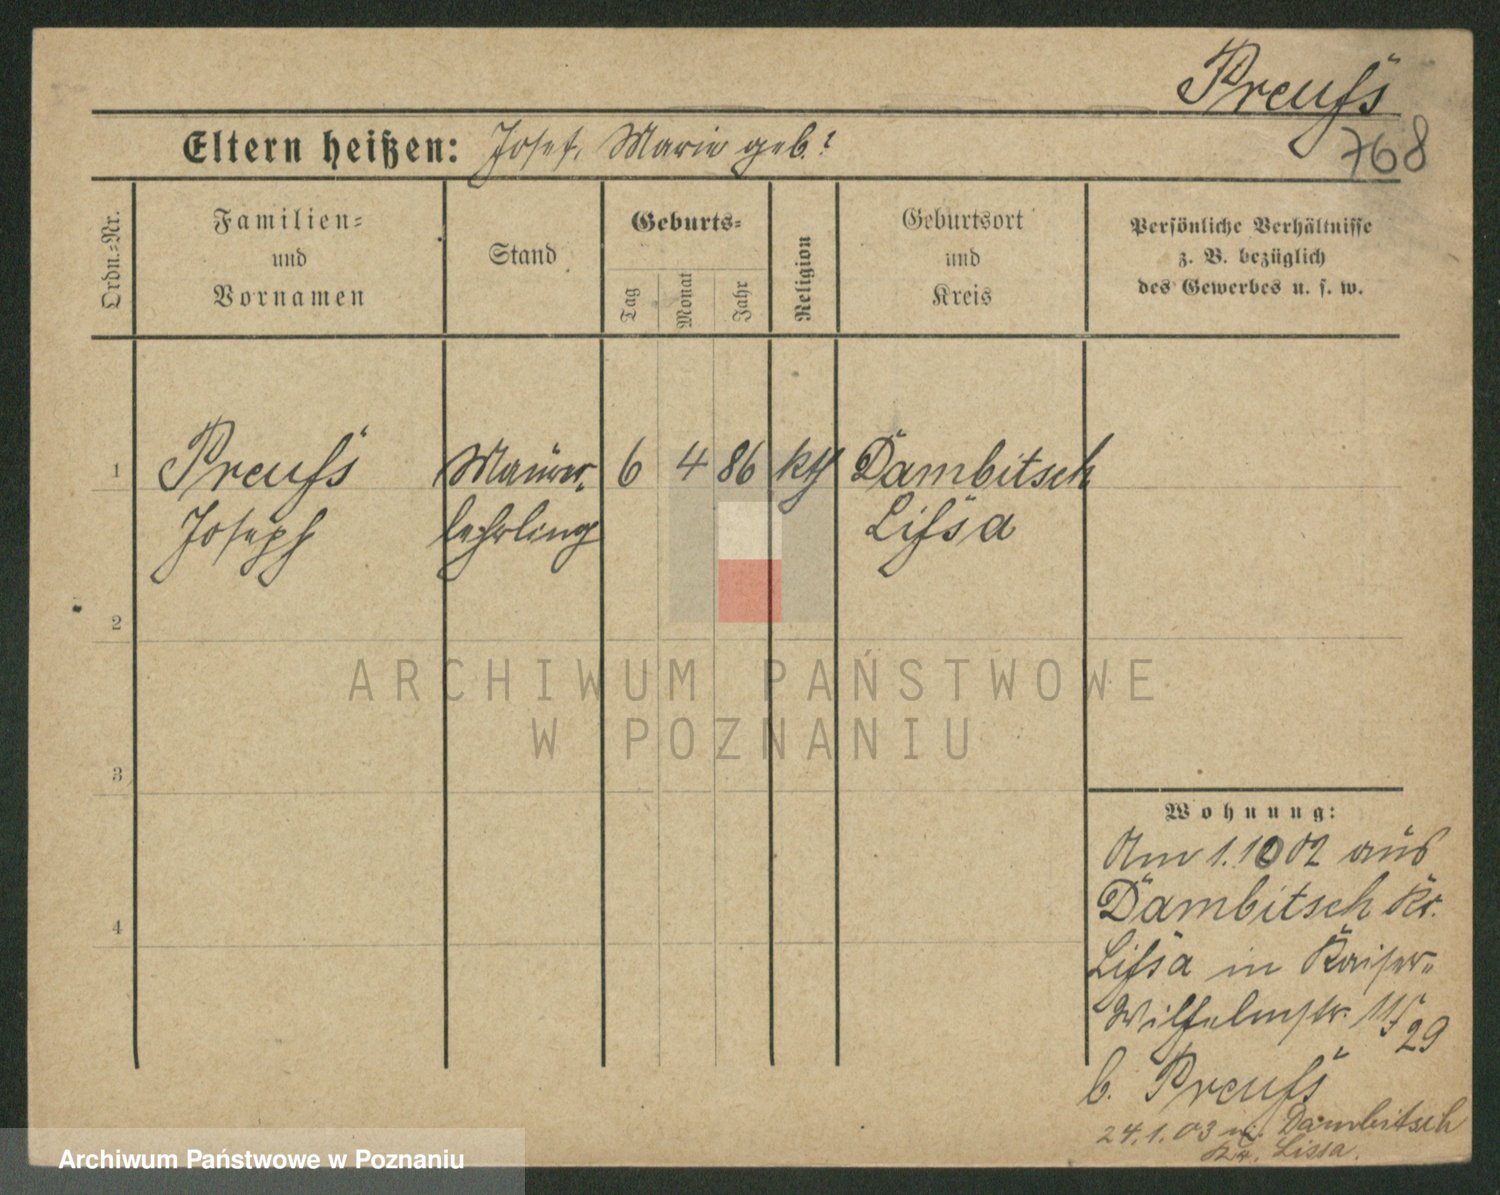 Preuſs
768
Eltern heißen: Josef, Marie geb. ?
Ordn.=Nr.
Familien=
und
Vornamen
Stand
Geburts=
Tag
Monat
Jahr
Religion
Geburtsort
und
Kreis
Persönliche Verhältnisse
z. B. bezüglich
des Gewerbes u. s. w.
1 Preuſs Maurer- 6 4 86 kth Dambitsch
Joseph lehrling Liſsa
2
ARCHIWUM PAŃSTWOWE
W POZNANIU
3
Wohnung:
Am 1.10 02 aus
Dambitsch Kr.
Liſsa in Kaiser-
Wilhelmstr.
29
b. Preuſs
24.1.03 n. Dambitsch
Kr. Lissa.
4
Archiwum Państwowe w Poznaniu